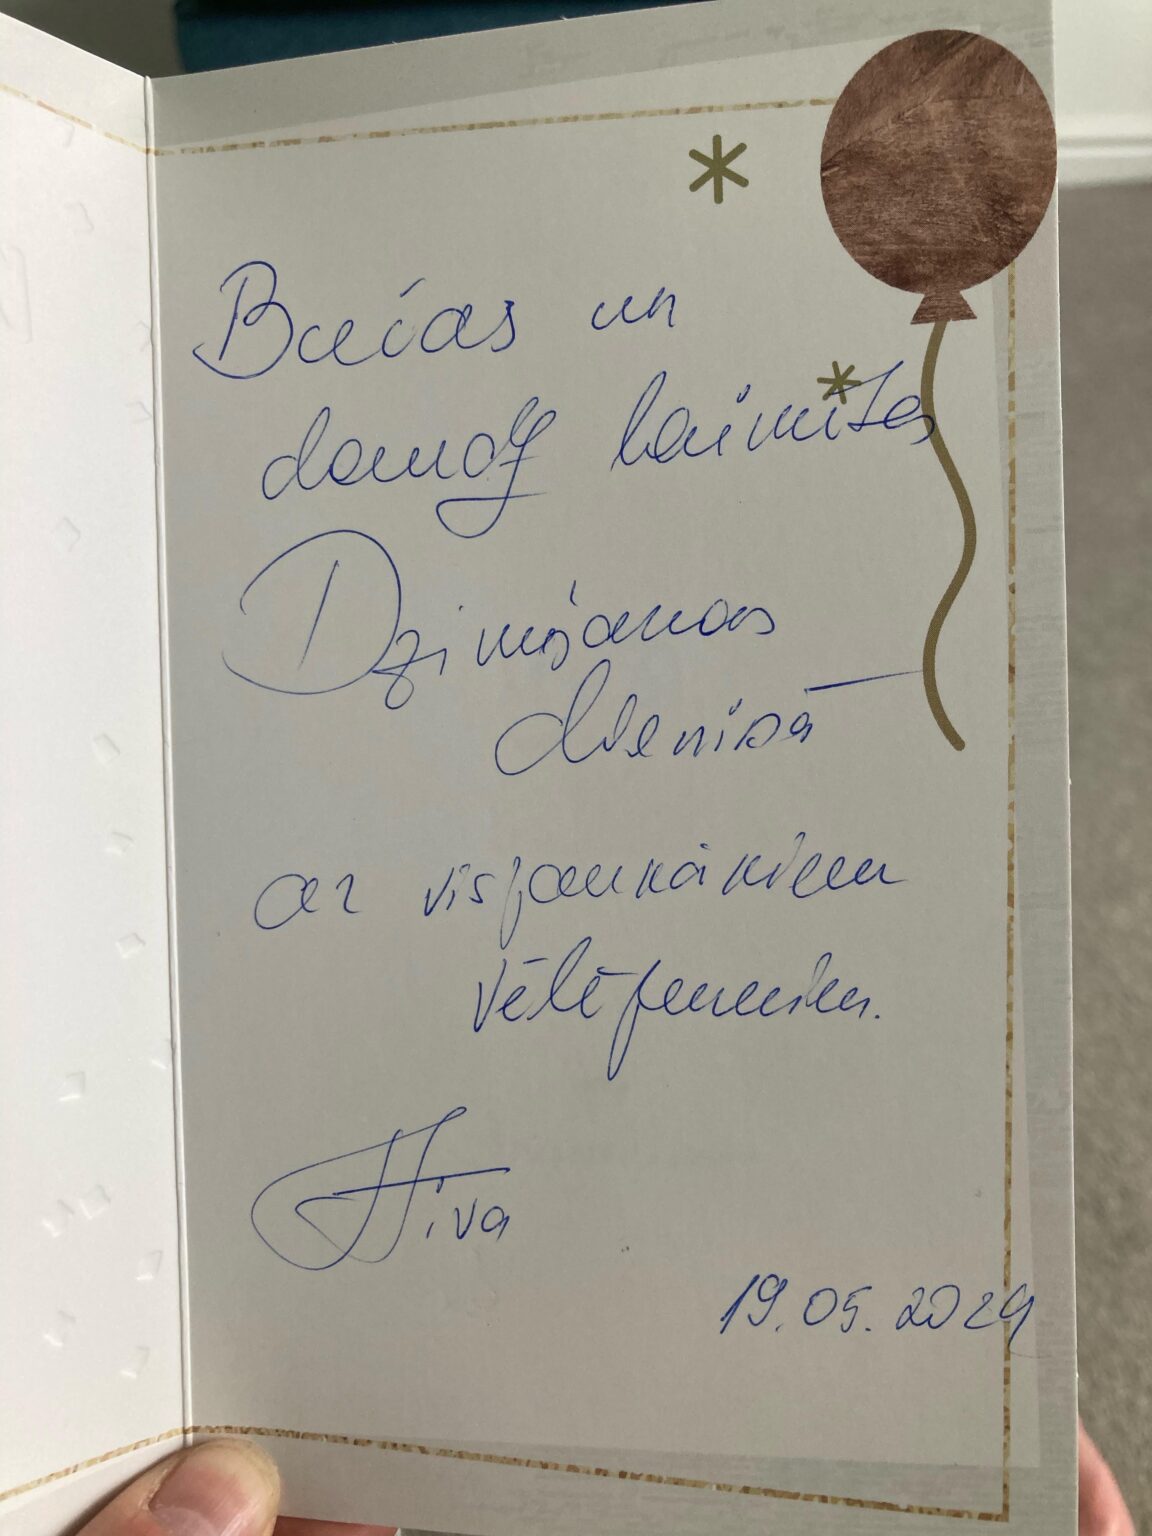 Bučas un
daudz laimītes
Dzimšanas
dieniņā
ar visjaukākiem
vēlējumiem.
19.05.2024